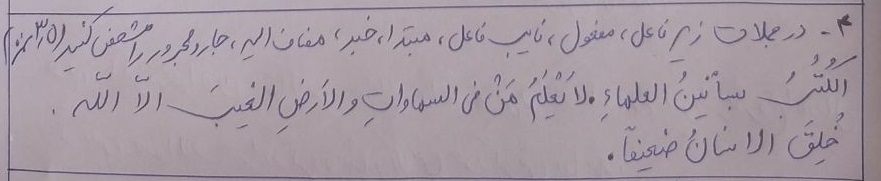 ۴- در جملات زیر فاعل، مفعول، نایب فاعل، مبتدا، خبر، مضاف الیه، جار و مجرور را مشخص کنید (۳/۵ نمره)
اَلکُتُبُ بساتینُ العلماءِ. لا یَعْلَمُ مَنْ فی السماواتِ و الأرضِ الغیبَ الّا اللّه.
خُلِقَ الانسانُ ضعیفاً.